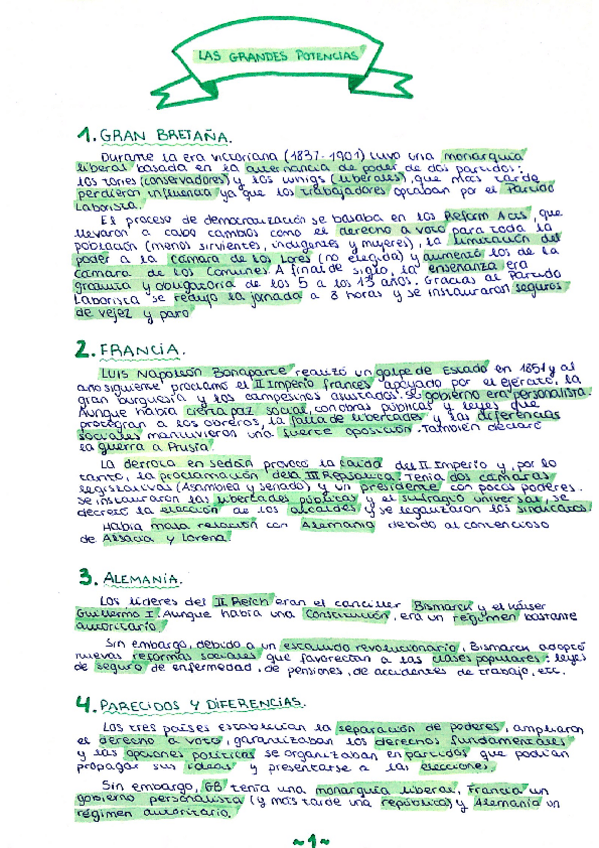 LAS GRANDES POTENCIAS
1. GRAN BRETAÑA.
Durante la era victoriana (1837-1901) tuvo una monarquía
liberal basada en la alternancia de poder de dos partidos:
los tories (conservadores) y los whigs (liberales), que más tarde
perdieron influencia ya que los trabajadores optaban por el Partido
Laborista.
El proceso de democratización se basaba en los Reform Acts, que
llevaron a cabo cambios como el derecho a voto para toda la
población (menos sirvientes, indigentes y mujeres), la limitación del
poder a la Cámara de los Lores (no elegida) y aumentó los de la
Cámara de los Comunes. A final de siglo, la enseñanza era
gratuita y obligatoria de los 5 a los 13 años. Gracias al Partido
Laborista se redujo la jornada a 8 horas y se instauraron seguros
de vejez y paro
2. FRANCIA.
Luis Napoleón Bonaparte realizó un golpe de Estado en 1851 y al
año siguiente proclamó el II Imperio francés apoyado por el ejército, la
gran burguesía y los campesinos asustados. Su gobierno era personalista.
Aunque había cierta paz social, con obras públicas y leyes que
protegían a los obreros, la falta de libertades y las diferencias
sociales mantuvieron una fuerte oposición. También declaró
la guerra a Prusia.
La derrota en Sedán provocó la caída del II Imperio y, por lo
tanto, la proclamación de la III República. Tenía dos cámaras
legislativas (Asamblea y Senado) y un presidente con pocos poderes.
Se instauraron las libertades públicas y el sufragio universal, se
decretó la elección de los alcaldes y se legalizaron los sindicatos.
Había mala relación con Alemania debido al contencioso
de Alsacia y Lorena.
3. ALEMANIA.
Los líderes del II Reich eran el canciller Bismarck y el káiser
Guillermo I. Aunque había una Constitución, era un régimen bastante
autoritario.
Sin embargo, debido a un estallido revolucionario, Bismarck adoptó
nuevas reformas sociales que favorecían a las clases populares: leyes
de seguro de enfermedad, de pensiones, de accidentes de trabajo, etc.
4. PARECIDOS Y DIFERENCIAS.
Los tres países establecían la separación de poderes, ampliaron
el derecho a voto, garantizaban los derechos fundamentales
y las opciones políticas se organizaban en partidos que podían
propagar sus ideas y presentarse a las elecciones.
Sin embargo, GB tenía una monarquía liberal, Francia un
gobierno personalista (y más tarde una república) y Alemania un
régimen autoritario.
~1~